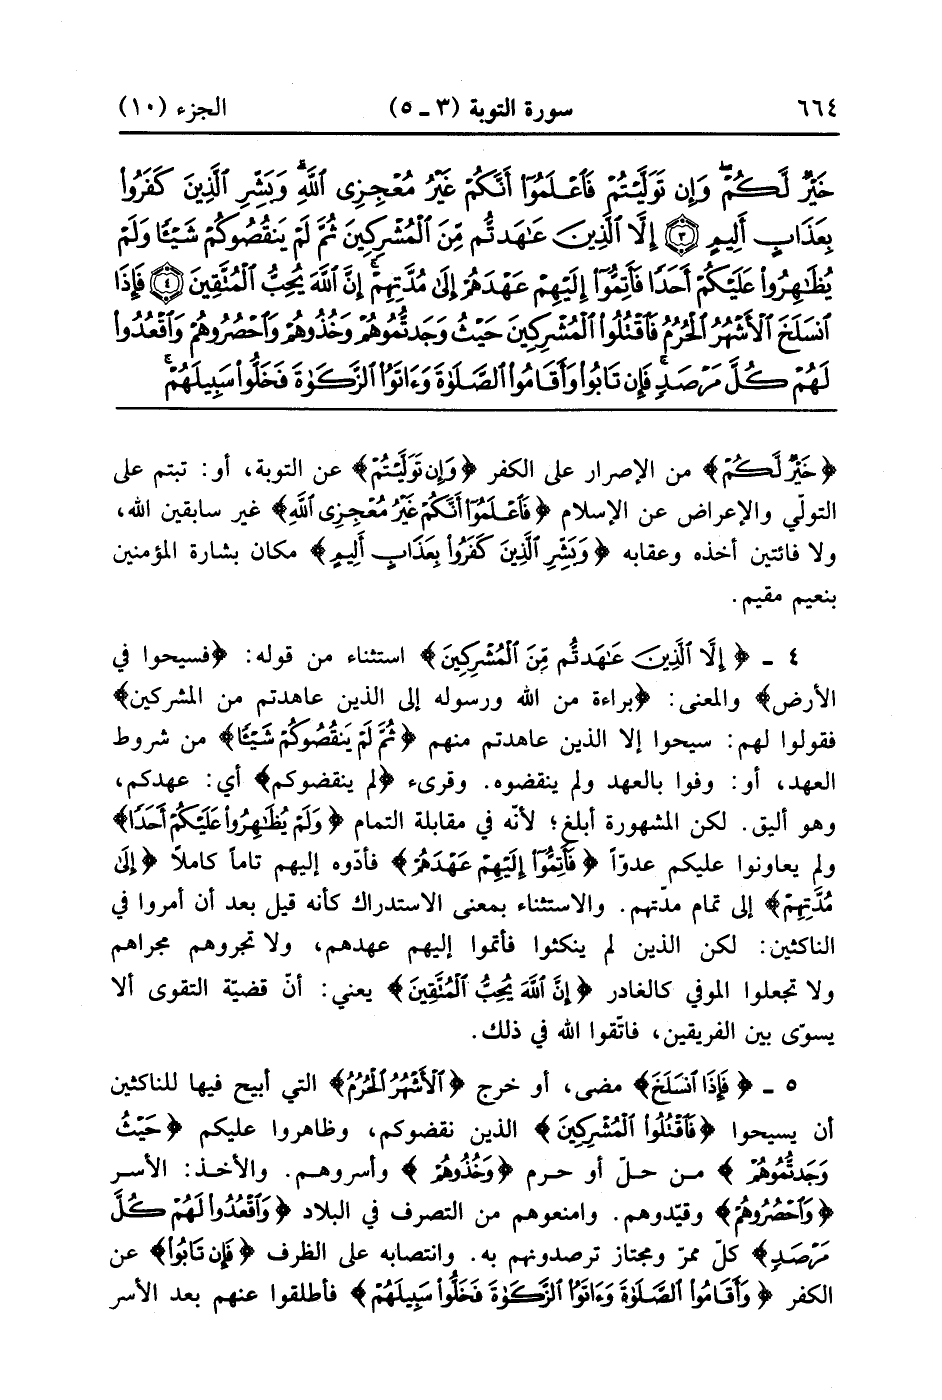 ٦٦٤ سورة التوبة (٣ ـ ٥) الجزء (١٠)
خَيْرٌ لَّكُمْ وَإِن تَوَلَّيْتُمْ فَاعْلَمُوا أَنَّكُمْ غَيْرُ مُعْجِزِى اللَّهِ وَبَشِّرِ الَّذِينَ كَفَرُوا
بِعَذَابٍ أَلِيمٍ ﴿٣﴾ إِلَّا الَّذِينَ عَاهَدتُّم مِّنَ الْمُشْرِكِينَ ثُمَّ لَمْ يَنقُصُوكُمْ شَيْئًا وَلَمْ
يُظَاهِرُوا عَلَيْكُمْ أَحَدًا فَأَتِمُّوا إِلَيْهِمْ عَهْدَهُمْ إِلَى مُدَّتِهِمْ إِنَّ اللَّهَ يُحِبُّ الْمُتَّقِينَ ﴿٤﴾ فَإِذَا
انسَلَخَ الْأَشْهُرُ الْحُرُمُ فَاقْتُلُوا الْمُشْرِكِينَ حَيْثُ وَجَدتُّمُوهُمْ وَخُذُوهُمْ وَاحْصُرُوهُمْ وَاقْعُدُوا
لَهُمْ كُلَّ مَرْصَدٍ فَإِن تَابُوا وَأَقَامُوا الصَّلَوٰةَ وَءَاتَوُا الزَّكَوٰةَ فَخَلُّوا سَبِيلَهُمْ
﴿خَيْرٌ لَّكُمْ﴾ من الإصرار على الكفر ﴿وَإِن تَوَلَّيْتُمْ﴾ عن التوبة، أو: تبتم على
التولّي والإعراض عن الإسلام ﴿فَاعْلَمُوا أَنَّكُمْ غَيْرُ مُعْجِزِى اللَّهِ﴾ غير سابقين الله،
ولا فائتين أخذه وعقابه ﴿وَبَشِّرِ الَّذِينَ كَفَرُوا بِعَذَابٍ أَلِيمٍ﴾ مكان بشارة المؤمنين
بنعيم مقيم.
٤ ـ ﴿إِلَّا الَّذِينَ عَاهَدتُّم مِّنَ الْمُشْرِكِينَ﴾ استثناء من قوله: ﴿فسيحوا في
الأرض﴾ والمعنى: ﴿براءة من الله ورسوله إلى الذين عاهدتم من المشركين﴾
فقولوا لهم: سيحوا إلا الذين عاهدتم منهم ﴿ثُمَّ لَمْ يَنقُصُوكُمْ شَيْئًا﴾ من شروط
العهد، أو: وفوا بالعهد ولم ينقضوه. وقرىء ﴿لم ينقضوكم﴾ أي: عهدكم،
وهو أليق. لكن المشهورة أبلغ؛ لأنّه في مقابلة التمام ﴿وَلَمْ يُظَاهِرُوا عَلَيْكُمْ أَحَدًا﴾
ولم يعاونوا عليكم عدوّاً ﴿فَأَتِمُّوا إِلَيْهِمْ عَهْدَهُمْ﴾ فأدّوه إليهم تاماً كاملاً ﴿إِلَى
مُدَّتِهِمْ﴾ إلى تمام مدّتهم. والاستثناء بمعنى الاستدراك كأنه قيل بعد أن أمروا في
الناكثين: لكن الذين لم ينكثوا فأتموا إليهم عهدهم، ولا تجروهم مجراهم
ولا تجعلوا الموفي كالغادر ﴿إِنَّ اللَّهَ يُحِبُّ الْمُتَّقِينَ﴾ يعني: أنّ قضيّة التقوى ألا
يسوّى بين الفريقين، فاتّقوا الله في ذلك.
٥ ـ ﴿فَإِذَا انسَلَخَ﴾ مضى، أو خرج ﴿الْأَشْهُرُ الْحُرُمُ﴾ التي أبيح فيها للناكثين
أن يسيحوا ﴿فَاقْتُلُوا الْمُشْرِكِينَ﴾ الذين نقضوكم، وظاهروا عليكم ﴿حَيْثُ
وَجَدتُّمُوهُمْ﴾ من حلّ أو حرم ﴿وَخُذُوهُمْ﴾ وأسروهم. والأخذ: الأسر
﴿وَاحْصُرُوهُمْ﴾ وقيّدوهم. وامنعوهم من التصرف في البلاد ﴿وَاقْعُدُوا لَهُمْ كُلَّ
مَرْصَدٍ﴾ كلّ ممرّ ومجتاز ترصدونهم به. وانتصابه على الظرف ﴿فَإِن تَابُوا﴾ عن
الكفر ﴿وَأَقَامُوا الصَّلَوٰةَ وَءَاتَوُا الزَّكَوٰةَ فَخَلُّوا سَبِيلَهُمْ﴾ فأطلقوا عنهم بعد الأسر